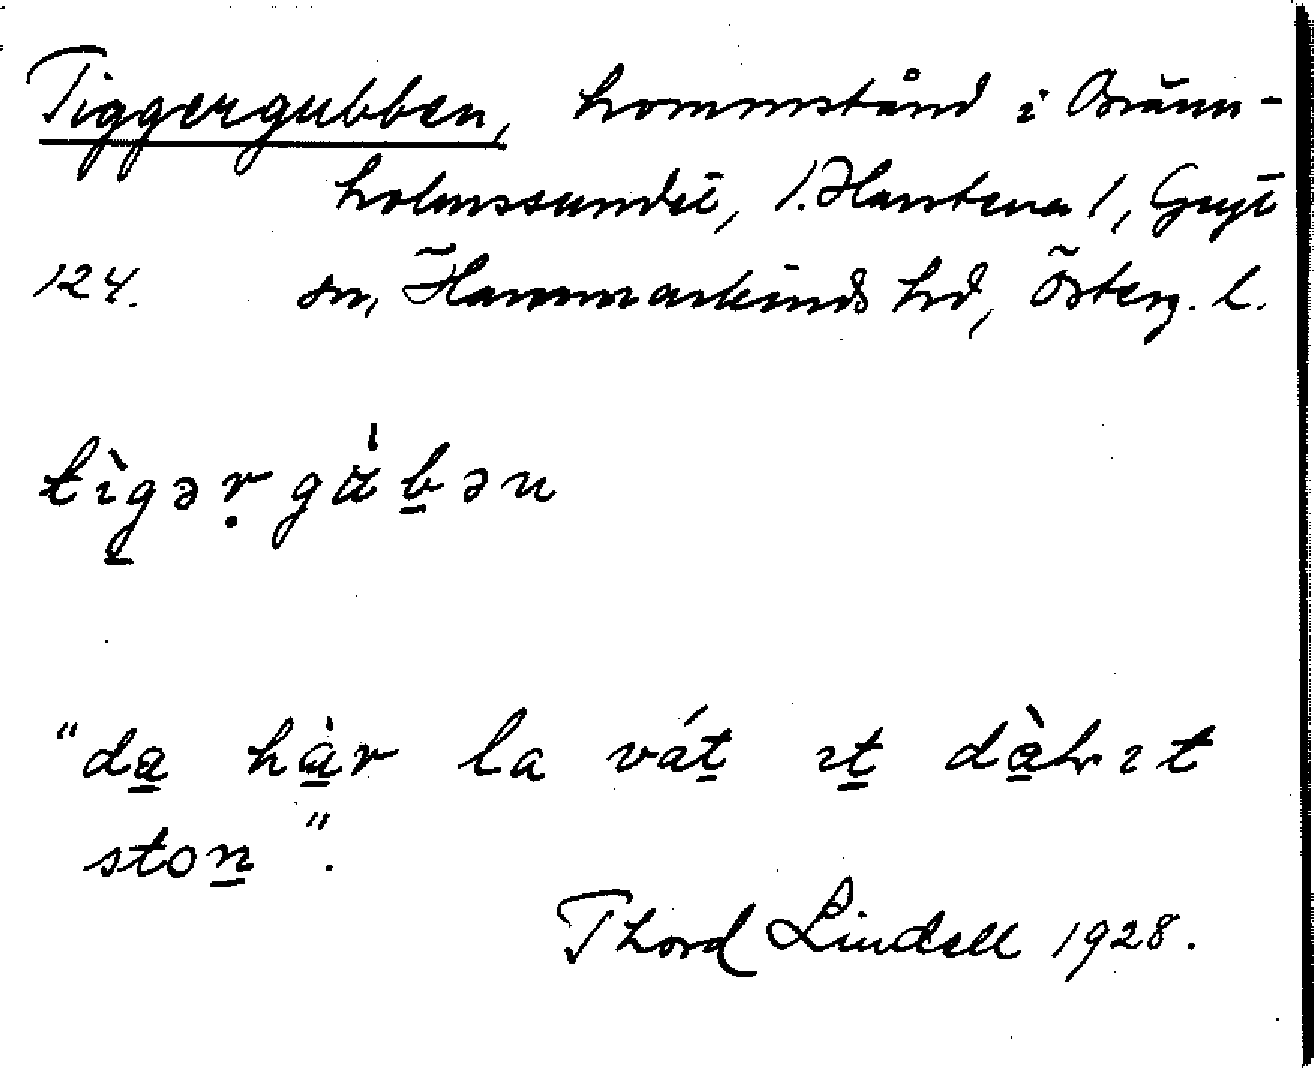 Tiggergubben, hommstånd i Bränn-
holmssundet, /. Hartena /, Gryt
124. sn, Hammarkinds hd, Österg. l.
tìgəṛgàbən
"da hàr la vát ıt dàlıt
ston".
Thord Lindell 1928.